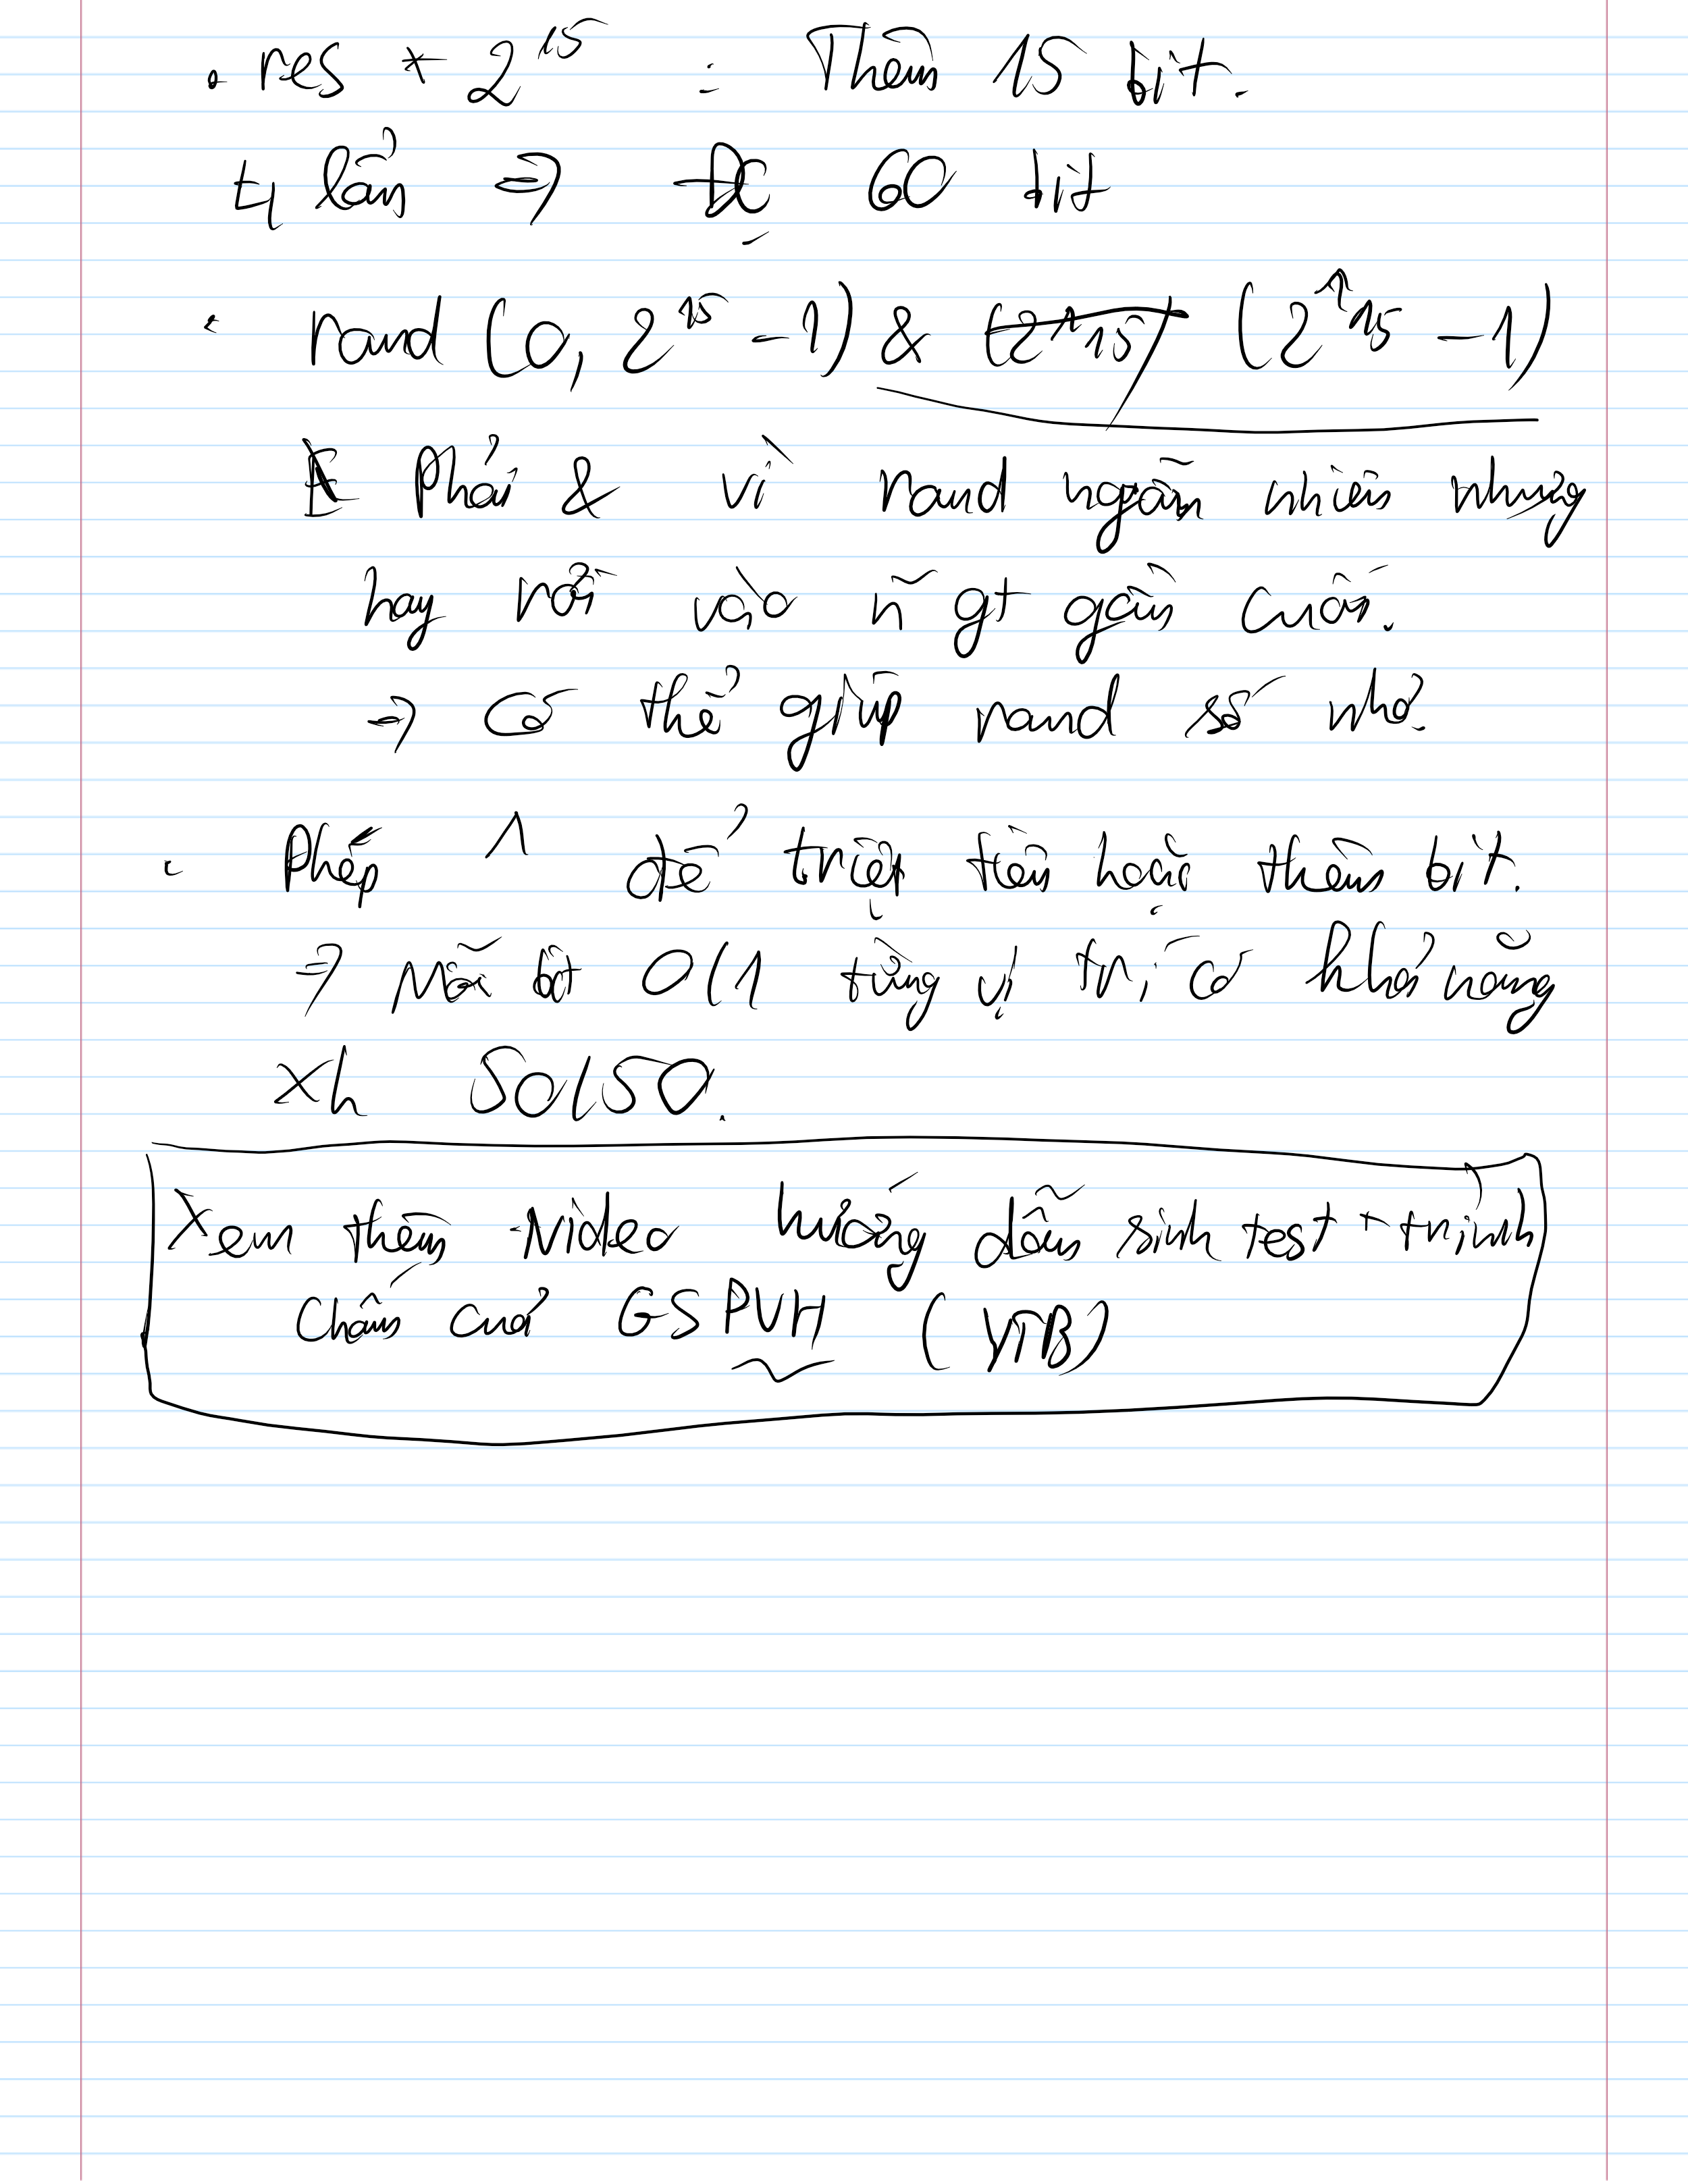 . res * 2^15 : Thêm 15 bit.
4 lần ⇒ Đc 60 bit
. rand (0, 2^15 - 1) & (2^15) (2^15 - 1)
Phải & vì rand ngẫu nhiên nhưng
hay rơi vào n~ gt gần cuối.
⇒ Có thể giúp rand số nhỏ.
. Phép ^ để triệt tiêu hoặc thêm bit.
⇒ Mỗi bit 0/1 từng vị trí có khả năng
xh 50/50.
Xem thêm Video hướng dẫn sinh test + trình
chấm của GSPVH (YTB)